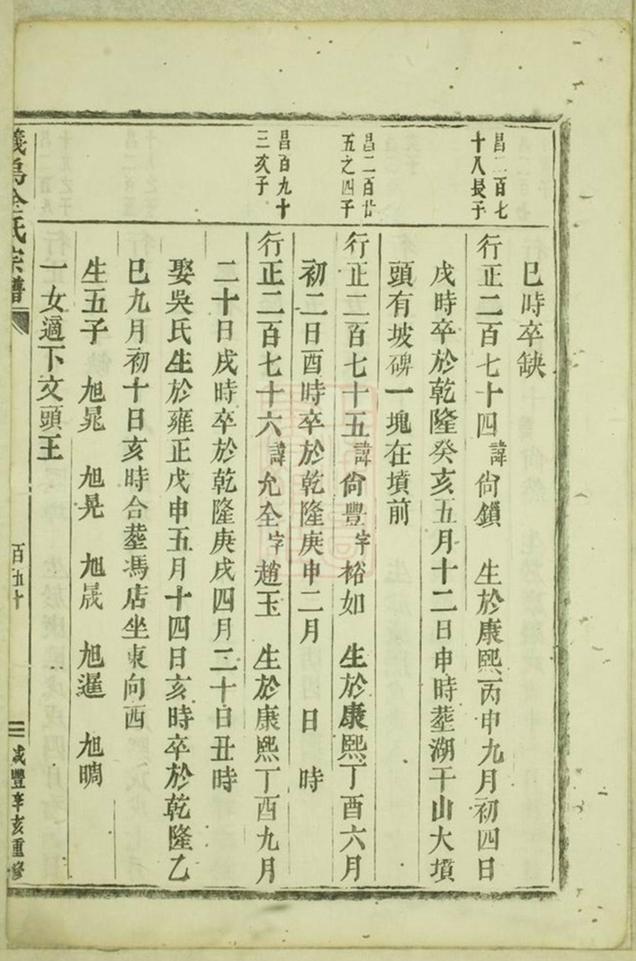 巳時卒缺
昌二百七
十八長子
行正二百七十四諱尙鎖　生於康熙丙申九月初四日
戌時卒於乾隆癸亥五月十二日申時塟湖干山大墳
頭有坡碑一塊在墳前
昌二百廿
五之四子
行正二百七十五諱尙豐字裕如　生於康熙丁酉六月
初二日酉時卒於乾隆庚申二月　日　時
昌百九十
三次子
行正二百七十六諱允全字趙玉　生於康熙丁酉九月
二十日戌時卒於乾隆庚戌四月二十日丑時
娶吳氏生於雍正戊申五月十四日亥時卒於乾隆乙
巳九月初十日亥時合塟馮店坐東向西
生五子　旭晁　旭晃　旭晟　旭暹　旭晭
一女適下文頭王
義烏金氏宗譜
百五十
咸豐辛亥重修